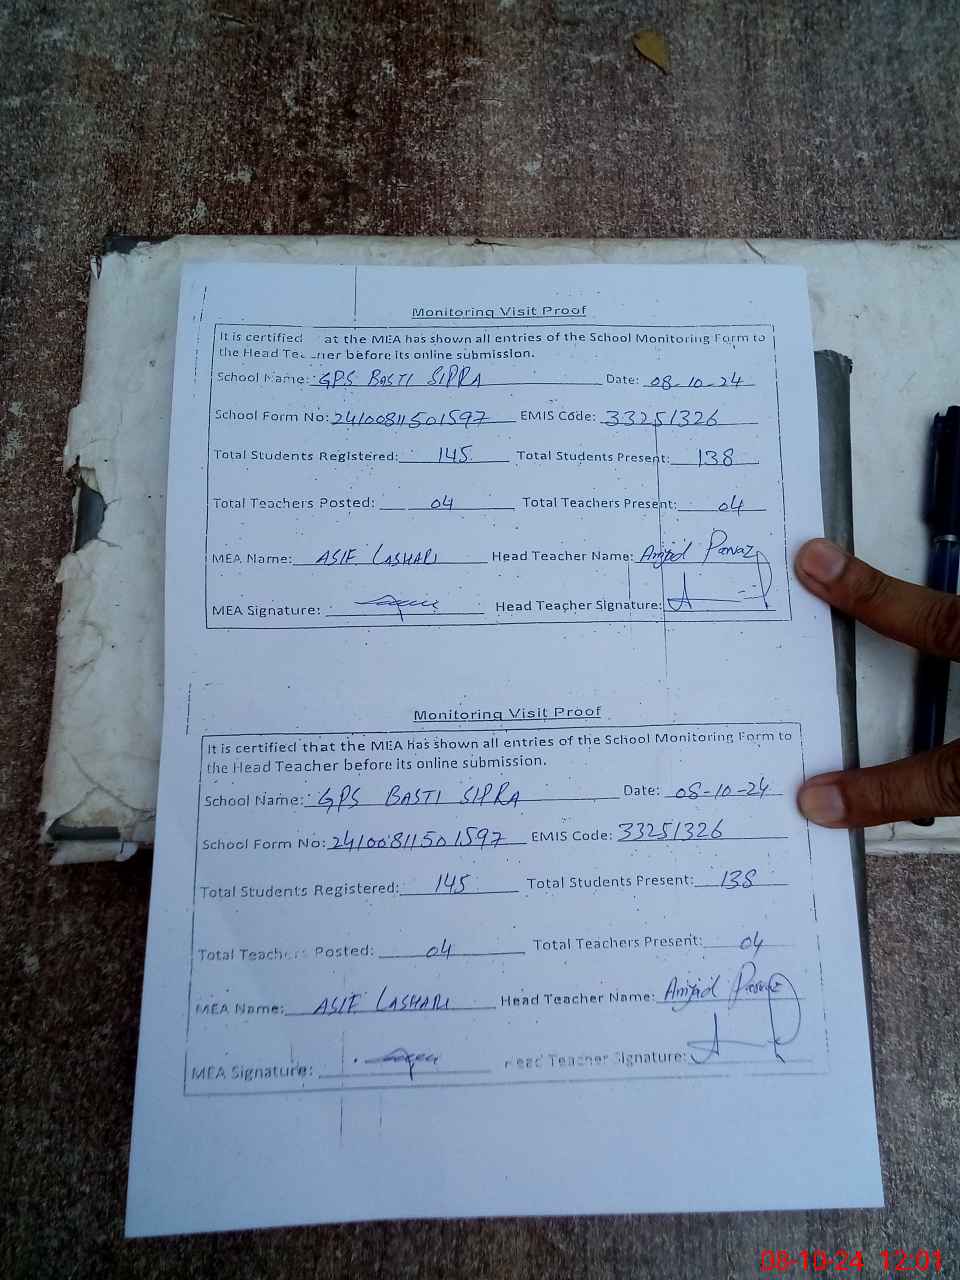 Monitoring Visit Proof
It is certified at the MEA has shown all entries of the School Monitoring Form to
the Head Teacher before its online submission.
School Name: GPS BASTI SIPRA Date: 08-10-24
School Form No: 2410081150 1597 EMIS Code: 33251326
Total Students Registered: 145 Total Students Present: 138
Total Teachers Posted: 04 Total Teachers Present: 04
MEA Name: ASIF LASHARI Head Teacher Name: Amjad Parvaz
MEA Signature: Head Teacher Signature:
Monitoring Visit Proof
It is certified that the MEA has shown all entries of the School Monitoring Form to
the Head Teacher before its online submission.
School Name: GPS BASTI SIPRA Date: 08-10-24
School Form No: 2410081150 1597 EMIS Code: 33251326
Total Students Registered: 145 Total Students Present: 138
Total Teachers Posted: 04 Total Teachers Present: 04
MEA Name: ASIF LASHARI Head Teacher Name: Amjad Parvaz
MEA Signature: Head Teacher Signature:
08-10-24 12:01